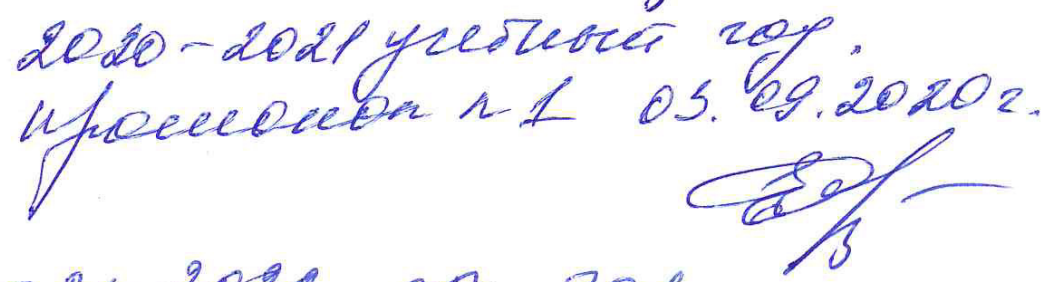 2020-2021 учебный год.
протокол №1 03.09.2020 г.